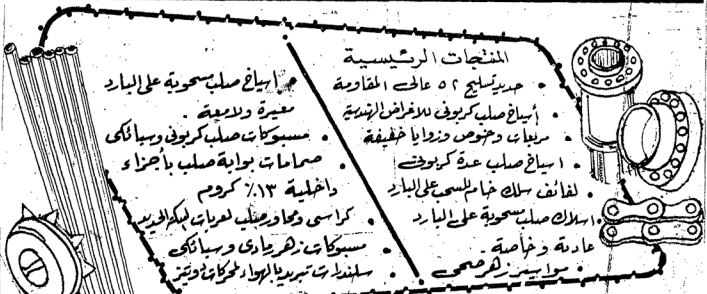 المنتجات الرئيسية
• حديد تسليح ٥٢ عالى المقاومة
• أسياخ صلب كربونى للأغراض الهندسية
• مربعات وخوص وزوايا خفيفة
• اسياخ صلب عدة كربونى
• لفائف سلك خام للسحب على البارد
• اسلاك صلب مسحوبة على البارد
عادية وخاصة .
• مواسير زهر صحى
• اسياخ صلب مسحوبة على البارد
معيرة ولامعة .
• مسبوكات صلب كربونى وسبائكى
• صمامات بوابة صلب بأجزاء
داخلية ١٣٪ كروم
• كراسى ومحاور صلب لعربات السكة الحديد
• مسبوكات زهر رمادى وسبائكى
• سلندرات تبريد بالهواء لمحركات دويتز